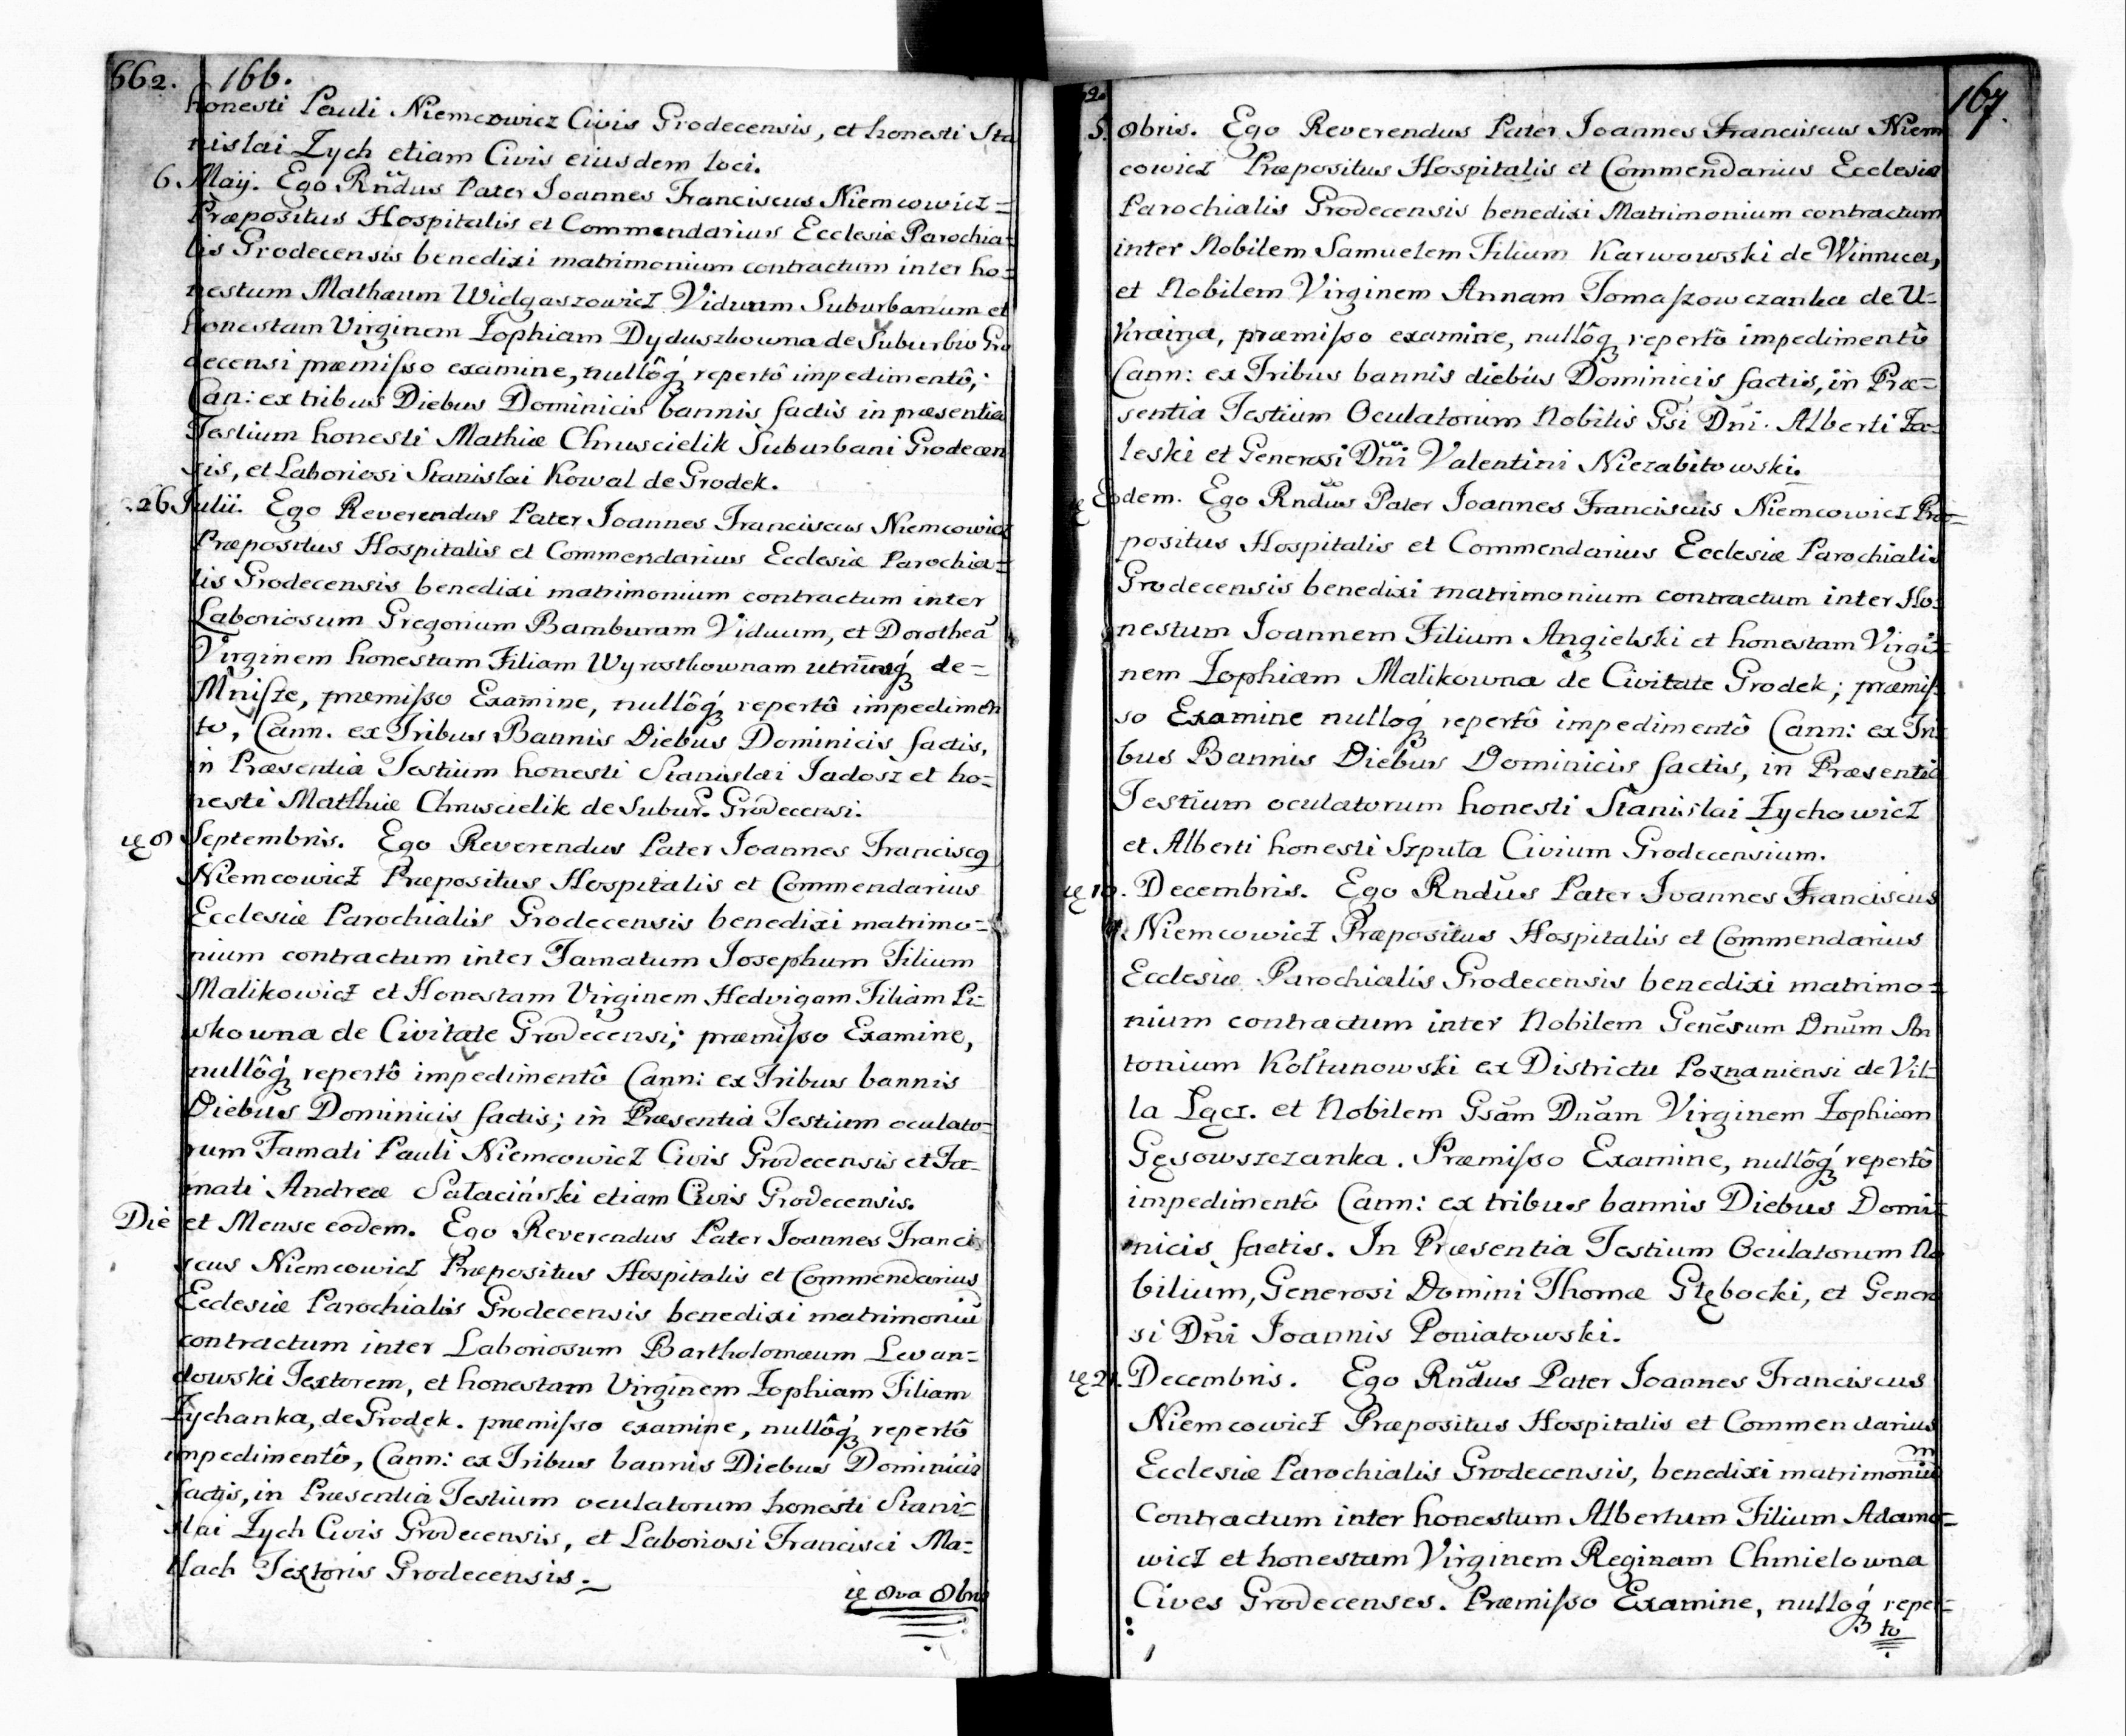 662. 166.
honesti Pauli Niemcowicz Civis Grodecensis, et honesti Sta
nislai Zych etiam Civis eiusdem loci.
6. Maÿ. Ego Rndus Pater Joannes Franciscus Niemcowicz=
Præpositus Hospitalis et Commendarius Ecclesiæ Parochia=
lis Grodecensis benedixi matrimonium contractum inter ho=
nestum Mathæum Widgaszowicz Viduum Suburbanum et
honestam Virginem Zophiam Dyduszkowna de Suburbio Gro
decensi præmisso examine, nullôq́ repertô impedimentô,
Can: ex tribus Diebus Dominicis bannis factis in præsentia
Testium honesti Mathiæ Chruscielik Suburbani Grodecen
sis, et Laboriosi Stanislai Kowal de Grodek.
26 Julii. Ego Reverendus Pater Joannes Franciscus Niemcowicz
Præpositus Hospitalis et Commendarius Ecclesiæ Parochia=
lis Grodecensis benedixi matrimonium contractum inter
Laboriosum Gregorium Bamburam Viduum, et Dorotheā
Virginem honestam Filiam Wyrostkownam utriusq́ de=
Mnisze, præmisso Examine, nullôq́ repertô impedimen
to, Cann. ex Tribus Bannis Diebus Dominicis factis,
in Præsentia Testium honesti Stanislai Jadosz et ho=
nesti Matthiæ Chruscielik de Subur. Grodecensi.
ię 8 Septembris. Ego Reverendus Pater Joannes Franciscq
Niemcowicz Præpositus Hospitalis et Commendarius
Ecclesiæ Parochialis Grodecensis benedixi matrimo=
nium contractum inter Famatum Josephum Filium
Malikowicz et Honestam Virginem Hedvigam Filiam Li=
wkowna de Civitate Grodecensi; præmisso Examine,
nullôq́ repertô impedimentô Cann: ex Tribus bannis
Diebus Dominicis factis; in Præsentia Testium oculato=
rum Famati Pauli Niemcowicz Civis Grodecensis et Fa=
mati Andreæ Sałaciński etiam Civis Grodecensis.
Die et Mense eodem. Ego Reverendus Pater Joannes Franci
scus Niemcowicz Præpositus Hospitalis et Commendarius
Ecclesiæ Parochialis Grodecensis benedixi matrimoniū
contractum inter Laboriosum Bartholomæum Lewan=
dowski Textorem, et honestam Virginem Zophiam Filiam
Zychanka, de Grodek. præmisso examine, nullôq́ repertô
impedimentô, Cann: ex Tribus bannis Diebus Dominicis
factis, in Præsentia Testium oculatorum honesti Stani=
slai Zych Civis Grodecensis, et Laboriosi Francisci Ma=
tlach Textoris Grodecensis.
ię 8va 8bris
167.
8bris. Ego Reverendus Pater Joannes Franciscus Niem
cowicz Præpositus Hospitalis et Commendarius Ecclesiæ
Parochialis Grodecensis benedixi Matrimonium contractum
inter Nobilem Samuelem Filium Karwowski de Winnica,
et Nobilem Virginem Annam Tomaszowczanka de U=
kraina, præmisso examine, nullôq́ repertô impedimentô
Cann: ex Tribus bannis diebus Dominicis factis, in Præ=
sentia Testium Oculatorum Nobilis Gsi Dni. Alberti Za=
leski et Generosi Dni Valentini Niezabitowski.
ię Eodem. Ego Rndus Pater Joannes Franciscus Niemcowicz Præ=
positus Hospitalis et Commendarius Ecclesiæ Parochialis
Grodecensis benedixi matrimonium contractum inter Ho=
nestum Joannem Filium Angielski et honestam Virgi=
nem Zophiam Malikowna de Civitate Grodek; præmis
so Examine nulloq́ repertô impedimentô Cann: ex Tri
bus Bannis Diebus Dominicis factis, in Præsentia
Testium oculatorum honesti Stanislai Zychowicz
et Alberti honesti Szputa Civium Grodecensium.
ię 10. Decembris. Ego Rndūs Pater Joannes Franciscus
Niemcowicz Præpositus Hospitalis et Commendarius
Ecclesiæ Parochialis Grodecensis benedixi matrimo=
nium contractum inter Nobilem Genēsum Dnūm An
tonium Kołtunowski ex Districtu Poznaniensi de Vil=
la Lącz. et Nobilem Gsām Dnām Virginem Zophiam
Gęsowszczanka. Præmisso Examine, nullôq́ repertô
impedimentô Cann: ex tribus bannis Diebus Domi=
nicis factis. In Præsentia Testium Oculatorum No
bilium, Generosi Domini Thomæ Głębocki, et Genero
si Dni Joannis Poniatowski.
ię 21. Decembris. Ego Rndus Pater Joannes Franciscus
Niemcowicz Præpositus Hospitalis et Commendarius
Ecclesiæ Parochialis Grodecensis, benedixi matrimonium
Contractum inter honestum Albertum Filium Adamo=
wicz et honestam Virginem Reginam Chmielowna
Cives Grodecenses. Præmisso Examine, nulloq́ reper=
to